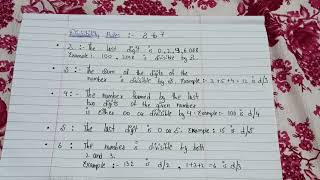 Divisibility Rules :- 2 to 7
2 : The last digit is 0, 2, 4, 6 or 8
Example :- 100, 2018 is divisible by 2.
3 : The sum of the digits of the
number is divisible by 3. Example :- 2+5+4+ = 12 is d/3
4 :- The number formed by the last
two digits of the given number
is either 00 or divisible by 4. Example :- 100 is d/4
5 : The last digit is 0 or 5. Example :- 15 is d/5
6 : The number is divisible by both
2 and 3.
Example :- 132 is d/2, 1+3+2 = 6 is d/3